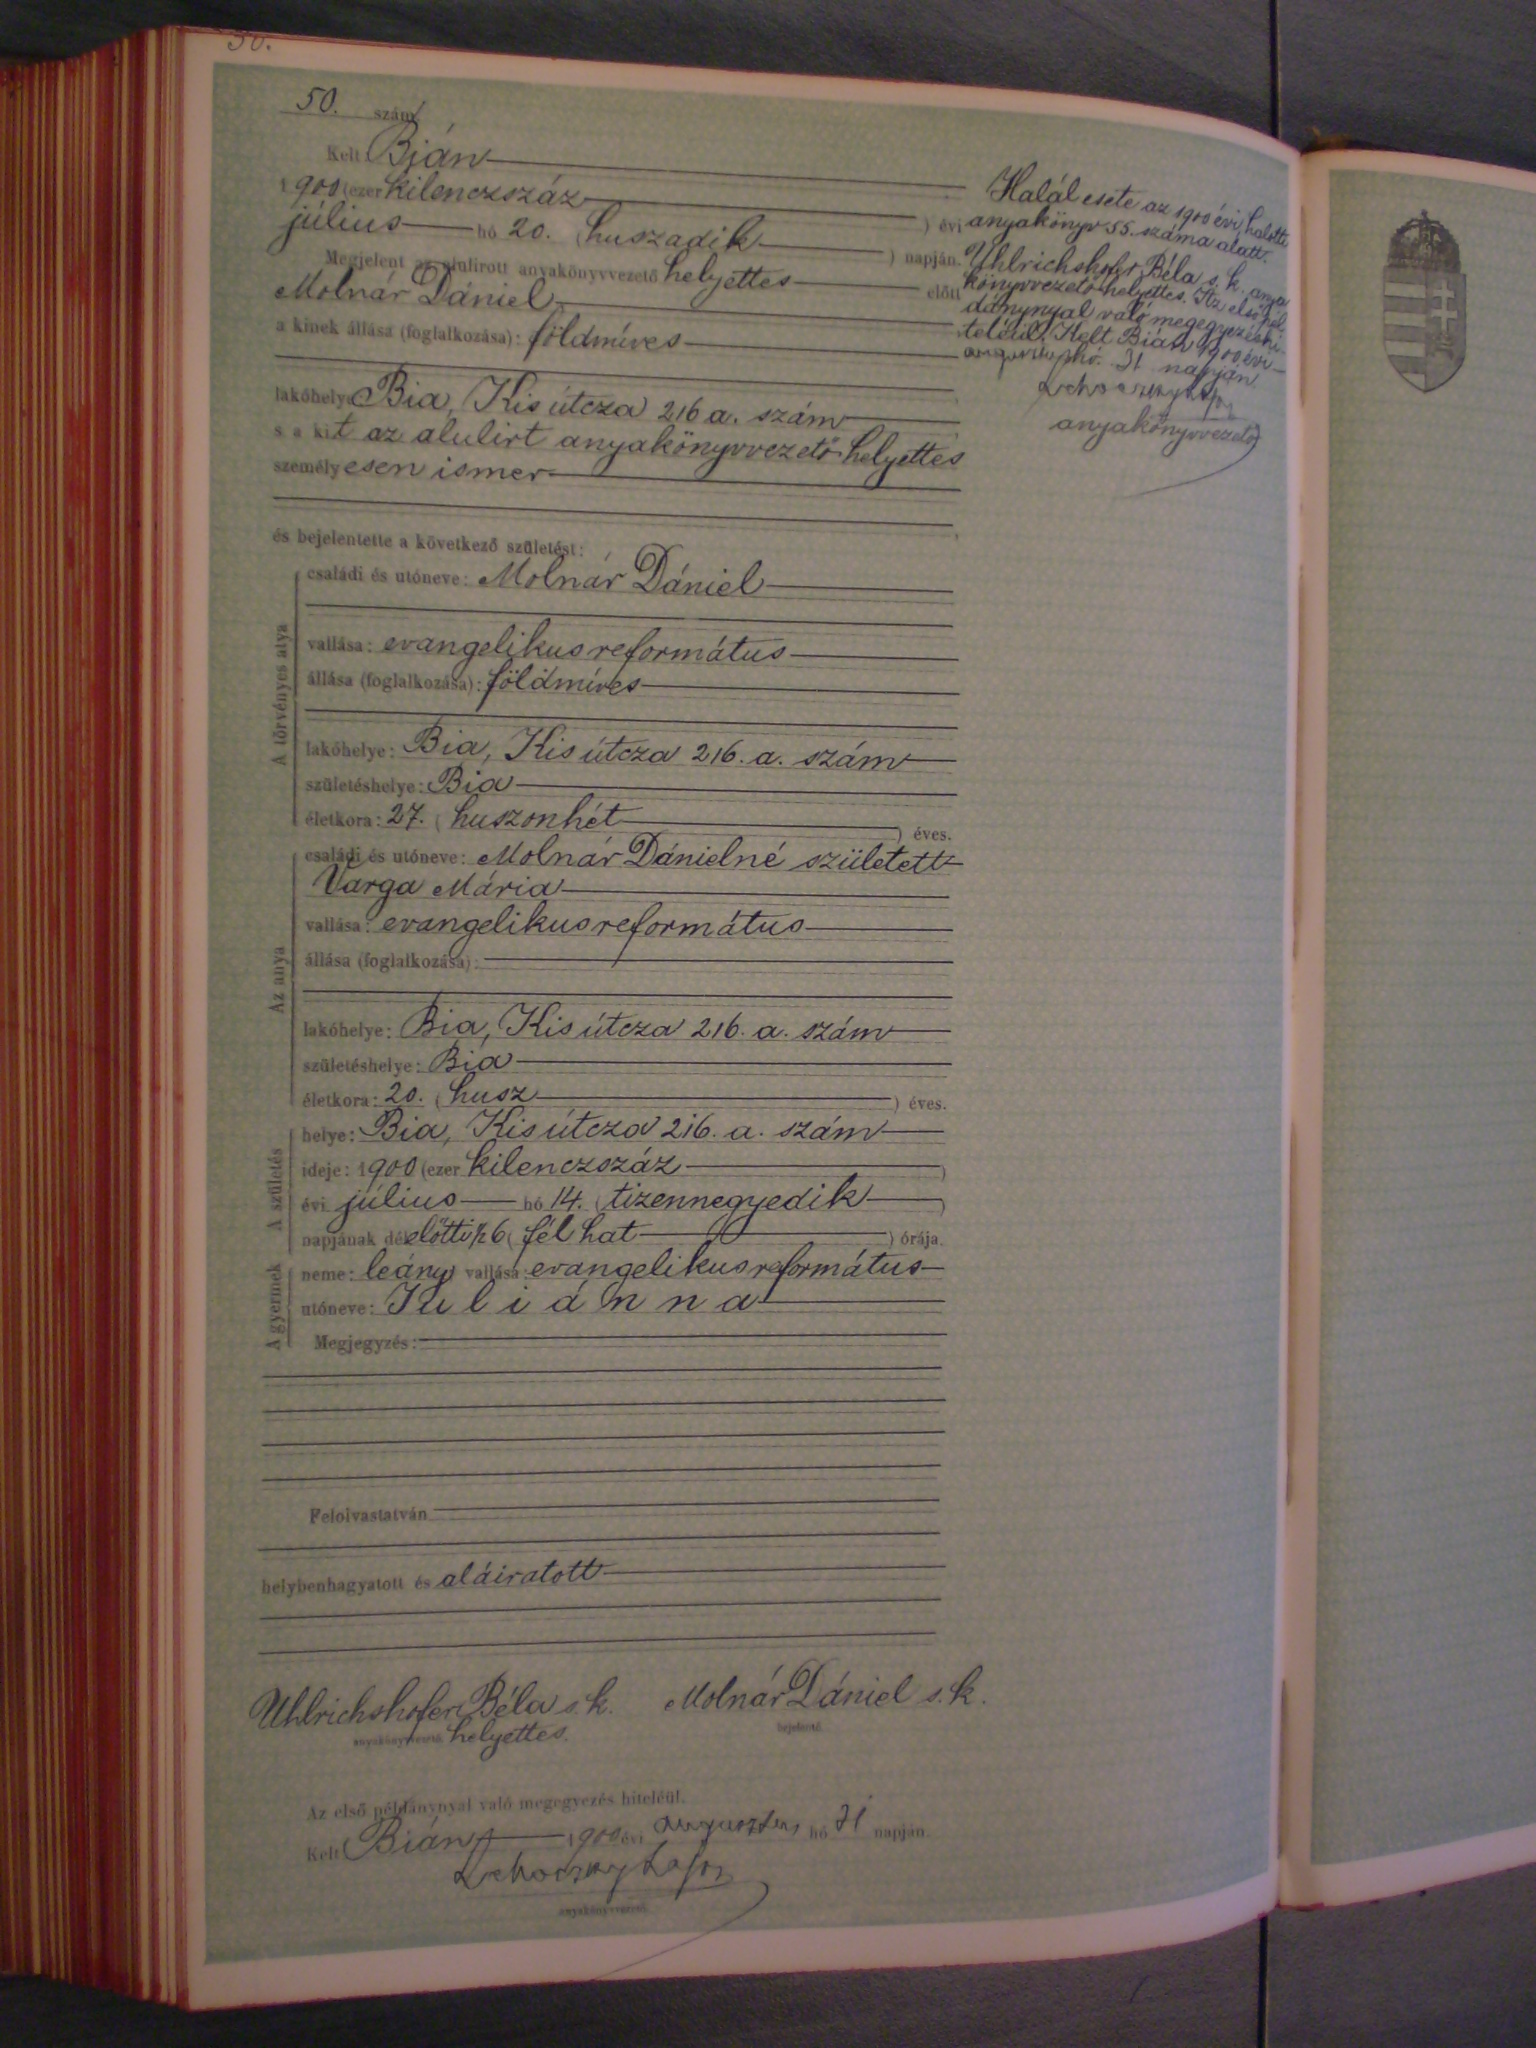 50.
50. szám
Kelt Bián
1900 (ezer kilenczszáz ) évi
július hó 20. (huszadik ) napján.
Megjelent az alulirott anyakönyvvezető helyettes előtt
Molnár Dániel
a kinek állása (foglalkozása): földmíves
lakóhelye Bia, Kis útcza 216 a. szám
s a kit az alulirt anyakönyvvezető helyettes
személyesen ismer
és bejelentette a következő születést:
A törvényes atya
családi és utóneve: Molnár Dániel
vallása: evangelikus református
állása (foglalkozása): földmíves
lakóhelye: Bia, Kis útcza 216. a. szám
születéshelye: Bia
életkora: 27. (huszonhét ) éves.
Az anya
családi és utóneve: Molnár Dánielné született
Varga Mária
vallása: evangelikus református
állása (foglalkozása):
lakóhelye: Bia, Kis útcza 216. a. szám
születéshelye: Bia
életkora: 20. (husz ) éves.
A születés
helye: Bia, Kis útcza 216. a. szám
ideje: 1900 (ezer kilenczszáz )
évi július hó 14. (tizennegyedik )
napjának délelőtti ½6 (fél hat ) órája.
A gyermek
neme: leány vallása: evangelikus református
utóneve: Juliánna
Megjegyzés:
Felolvastatván
helybenhagyatott és aláiratott
Uhlrichshofer Béla s. k. Molnár Dániel s. k.
anyakönyvvezető helyettes. bejelentő.
Az első példánynyal való megegyezés hiteléül.
Kelt Bián 1900 évi augusztus hó 31 napján.
Lehoczky Lajos
anyakönyvvezető.
Halál esete az 1900 évi halotti
anyakönyv 55. száma alatt.
Uhlrichshofer Béla s. k. anya
könyvvezető helyettes. Az első pél
dánynyal való megegyezés hi
teléül. Kelt Bián 1900 évi
augusztus hó. 31 napján
Lehoczky Lajos
anyakönyvvezető